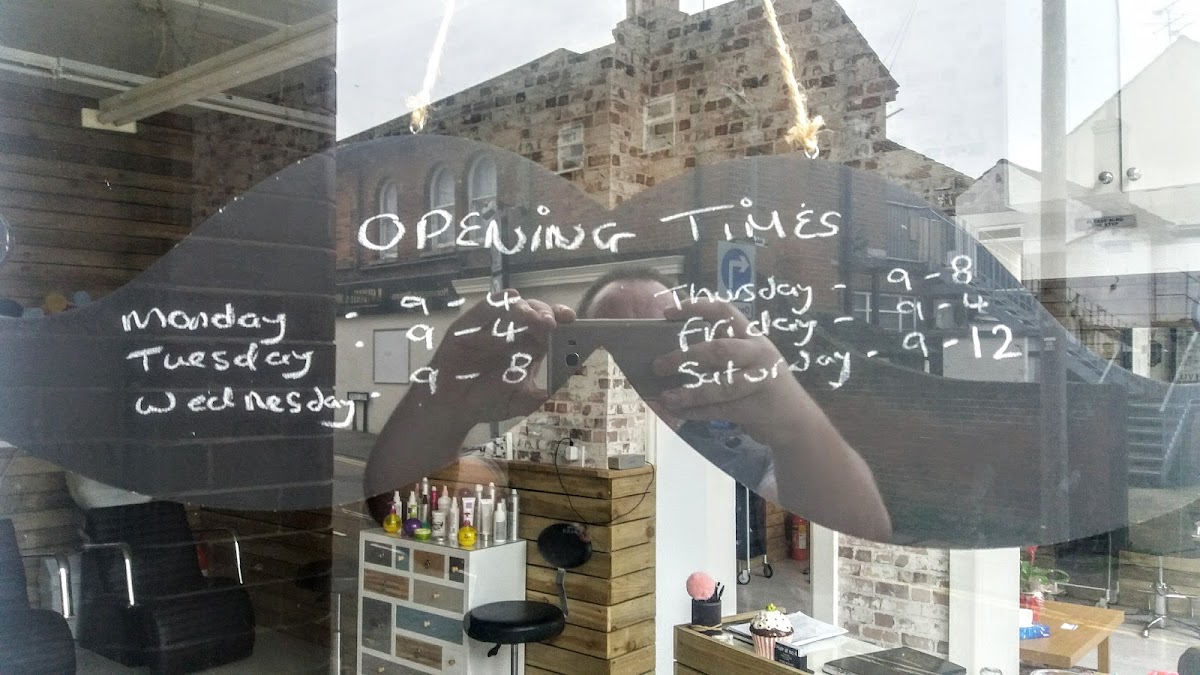 OPENING TIMES
Monday - 9 - 4
Tuesday - 9 - 4
Wednesday - 9 - 8
Thursday - 9 - 8
Friday - 9 - 4
Saturday - 9 - 12